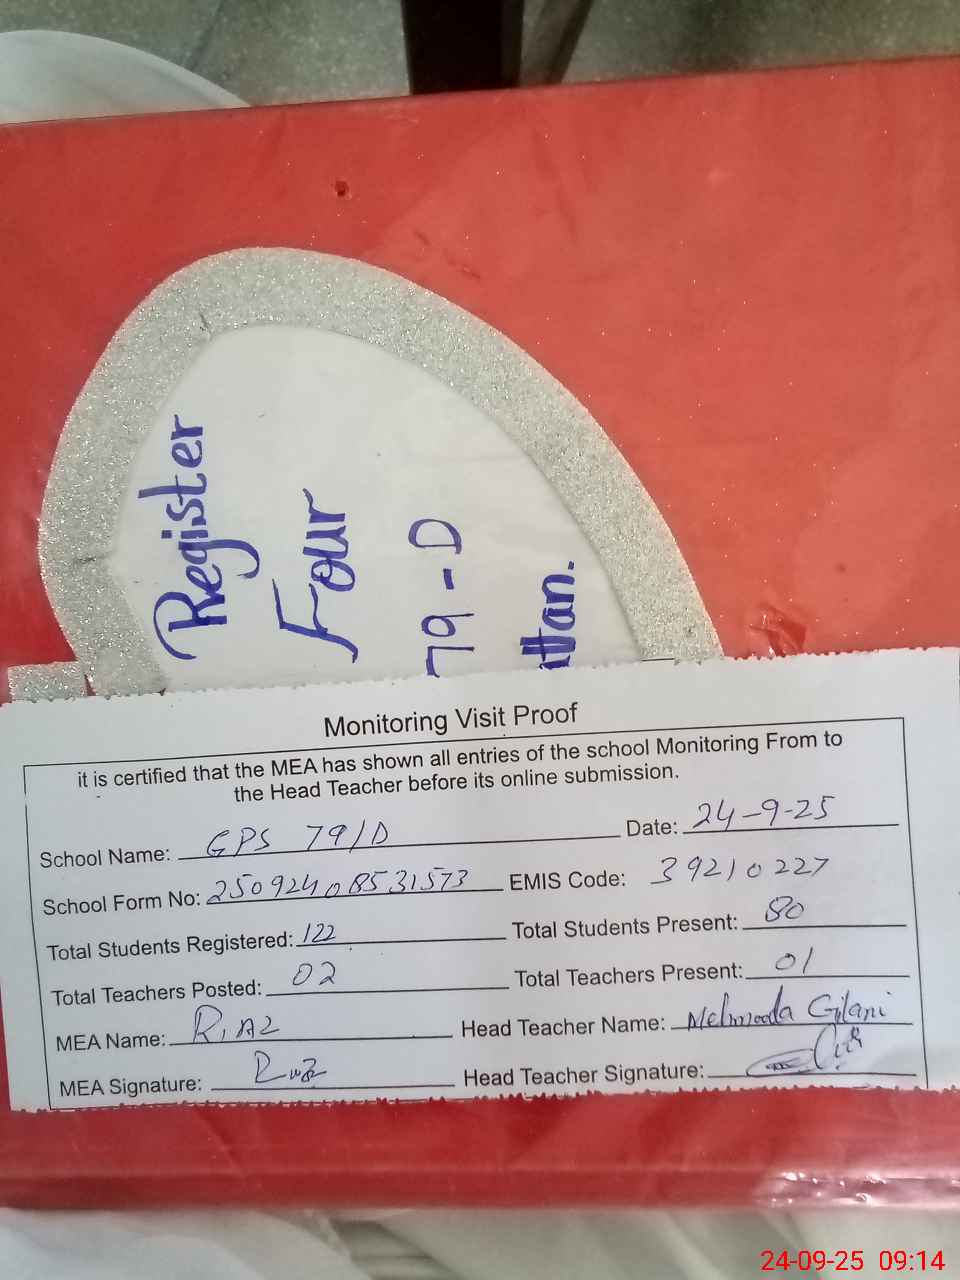 Register
Four
79-D
ttan.
Monitoring Visit Proof
it is certified that the MEA has shown all entries of the school Monitoring From to
the Head Teacher before its online submission.
School Name: GPS 79/D Date: 24-9-25
School Form No: 25092408531573 EMIS Code: 39210227
Total Students Registered: 122 Total Students Present: 80
Total Teachers Posted: 02 Total Teachers Present: 01
MEA Name: Riaz Head Teacher Name: Mehmooda Gilani
MEA Signature: Riaz Head Teacher Signature:
24-09-25 09:14